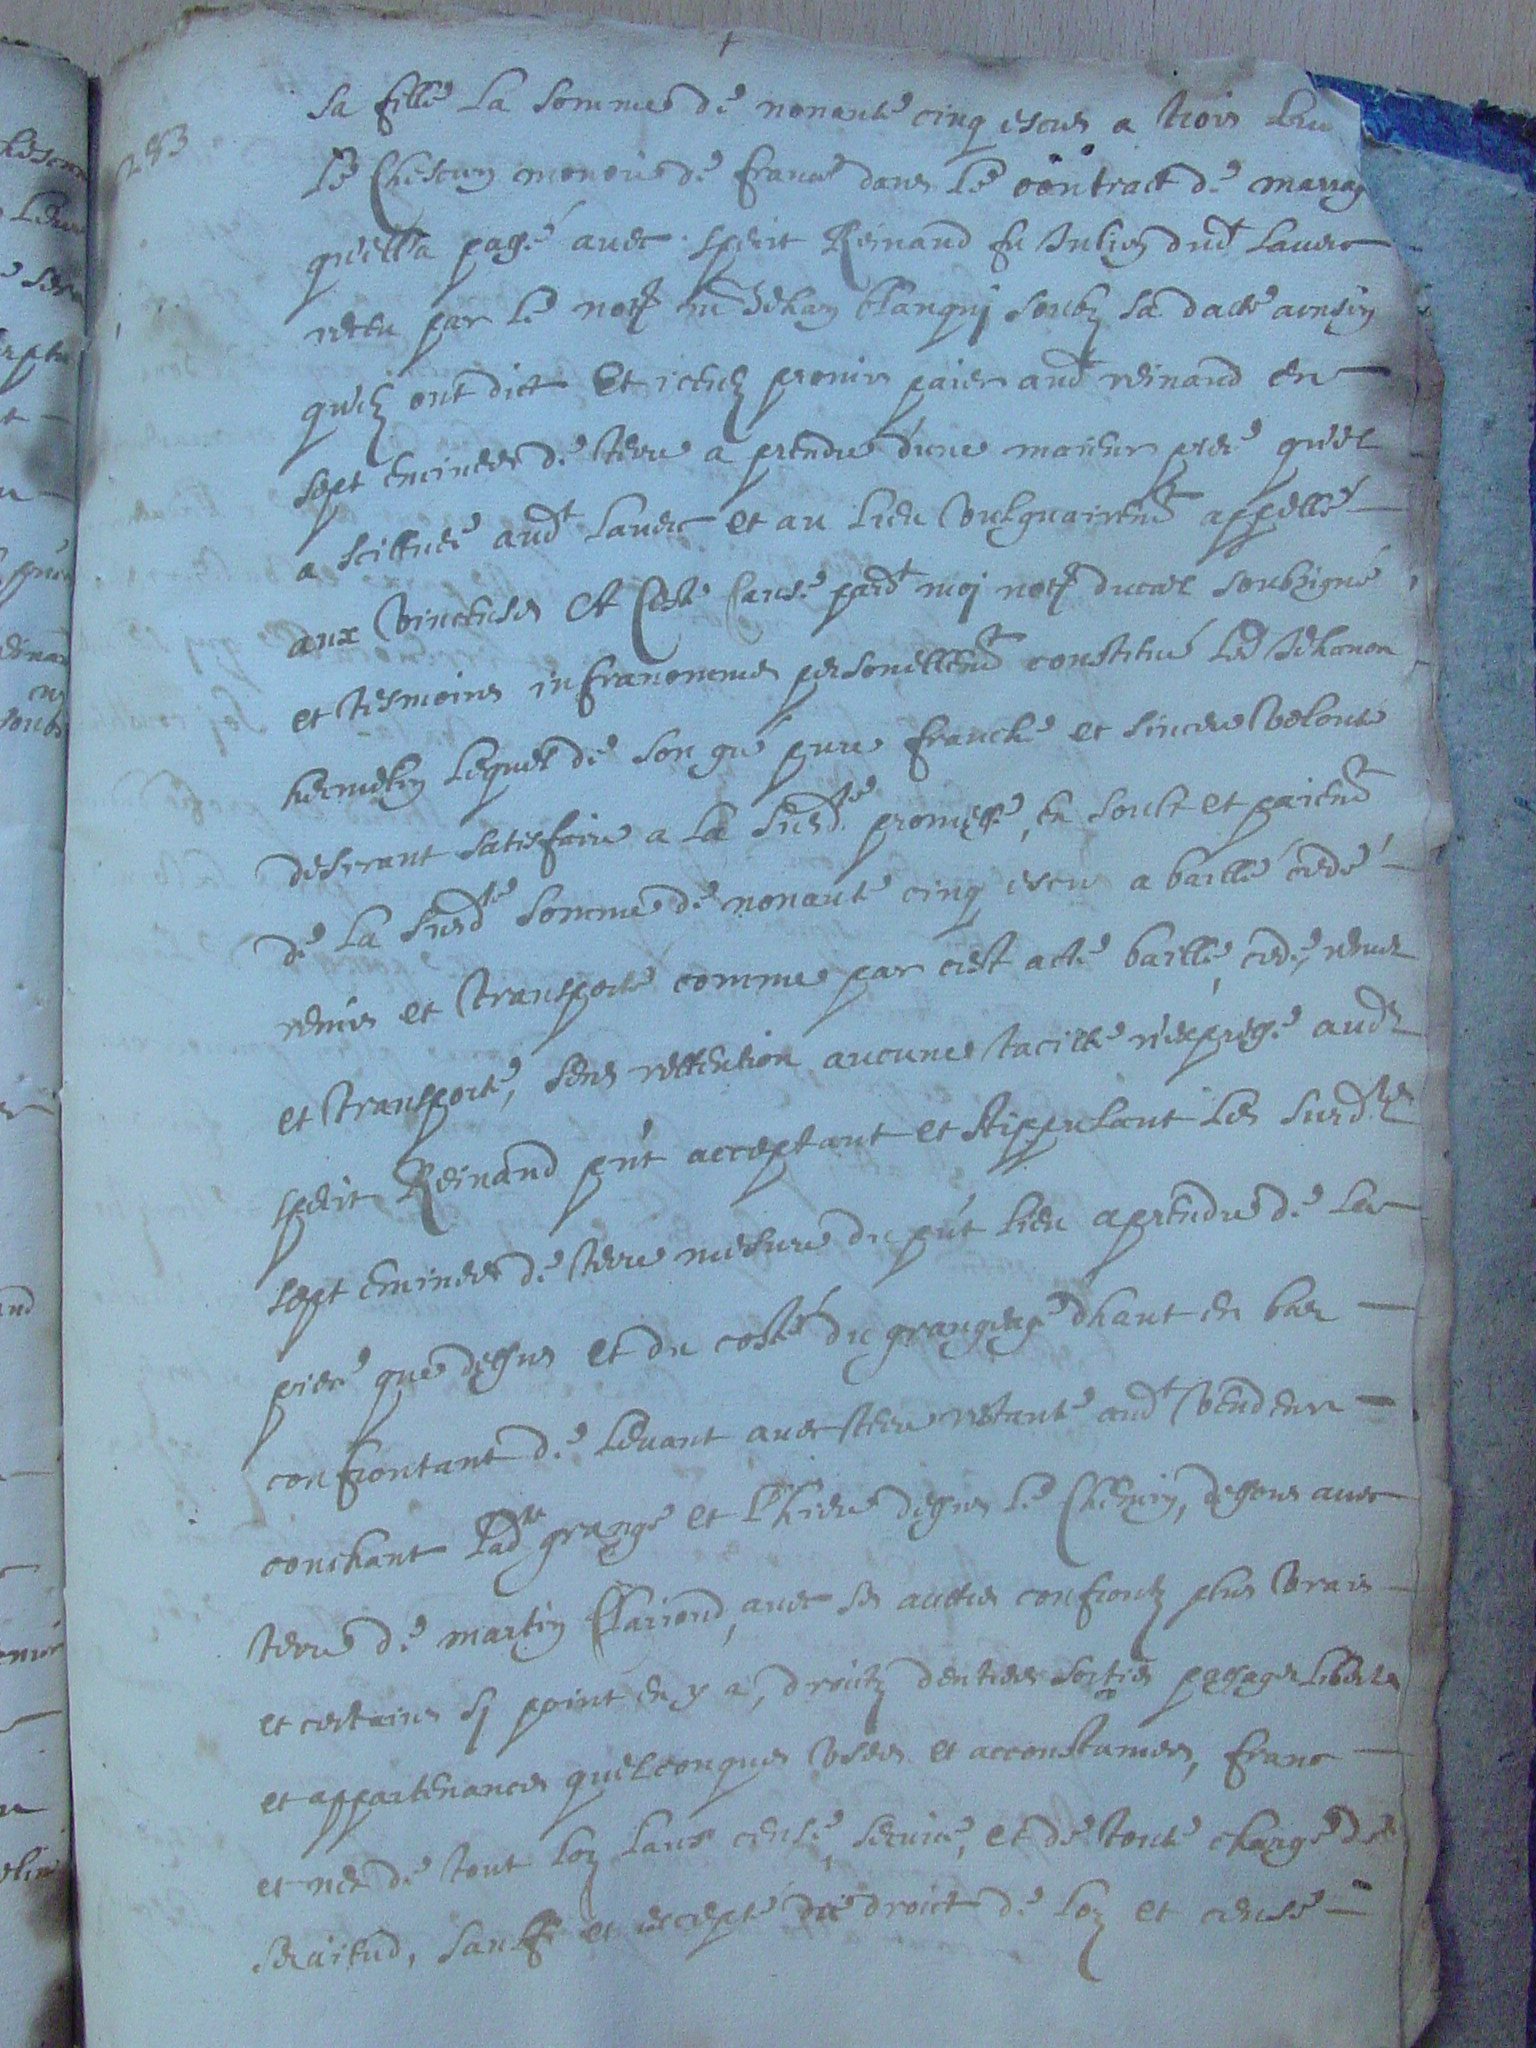 283
sa fille la somme de nonante cinq escus a trois
le chescun monoie de france dans le contract de mariag
quell'a pagé avec sperit Reinaud fu Julien dudt Lauerc
receu par le notre me Jehan blanqui soubz sa datte ainsin
qu'ilz ont dict Et iceux promis paier audt reinaud en
sept eminees de terre a prendre d'une maieur piece qu'il
a scittuée audt Lauerc et au lieu vulguairent appellé
aux Vincenses Et ceste cause pardt moj notre ducal soubzigné
et tesmoins infranommes personellemt constitué led Jehanon
hermelin lequel de son gré pure franche et sincere volonté
desirant satisfaire a la susdte promesse, en soult et paiemt
de la susdte somme de nonante cinq escus a baillé cedé
remis et transporté comme par cest acte baille, cede, remet
et transporte, sens rettention aucune tacitte n'expresse audt
sperit Reinaud pnt acceptant et stippulant les susdtes
sept eminees de terre mesure du pnt lieu aprendre de la
piece que dessus et du costé du grangeage d'haut en bas
confrontant de levant avec terre restante audt vendeur
couchant ladte grange et l'hiere dessus le chemin, dessous avec
terre de martin Clariond, avec ses autres confrontz plus vrais
et certains sj point en y a, droitz d'entrees sorties passages libertes
et appartenances quelconques usees et accoustumees, franc
et net de tout loz laux cense, service, et de toute charge de
servitud, sauf et excepté du droict de loz et cense